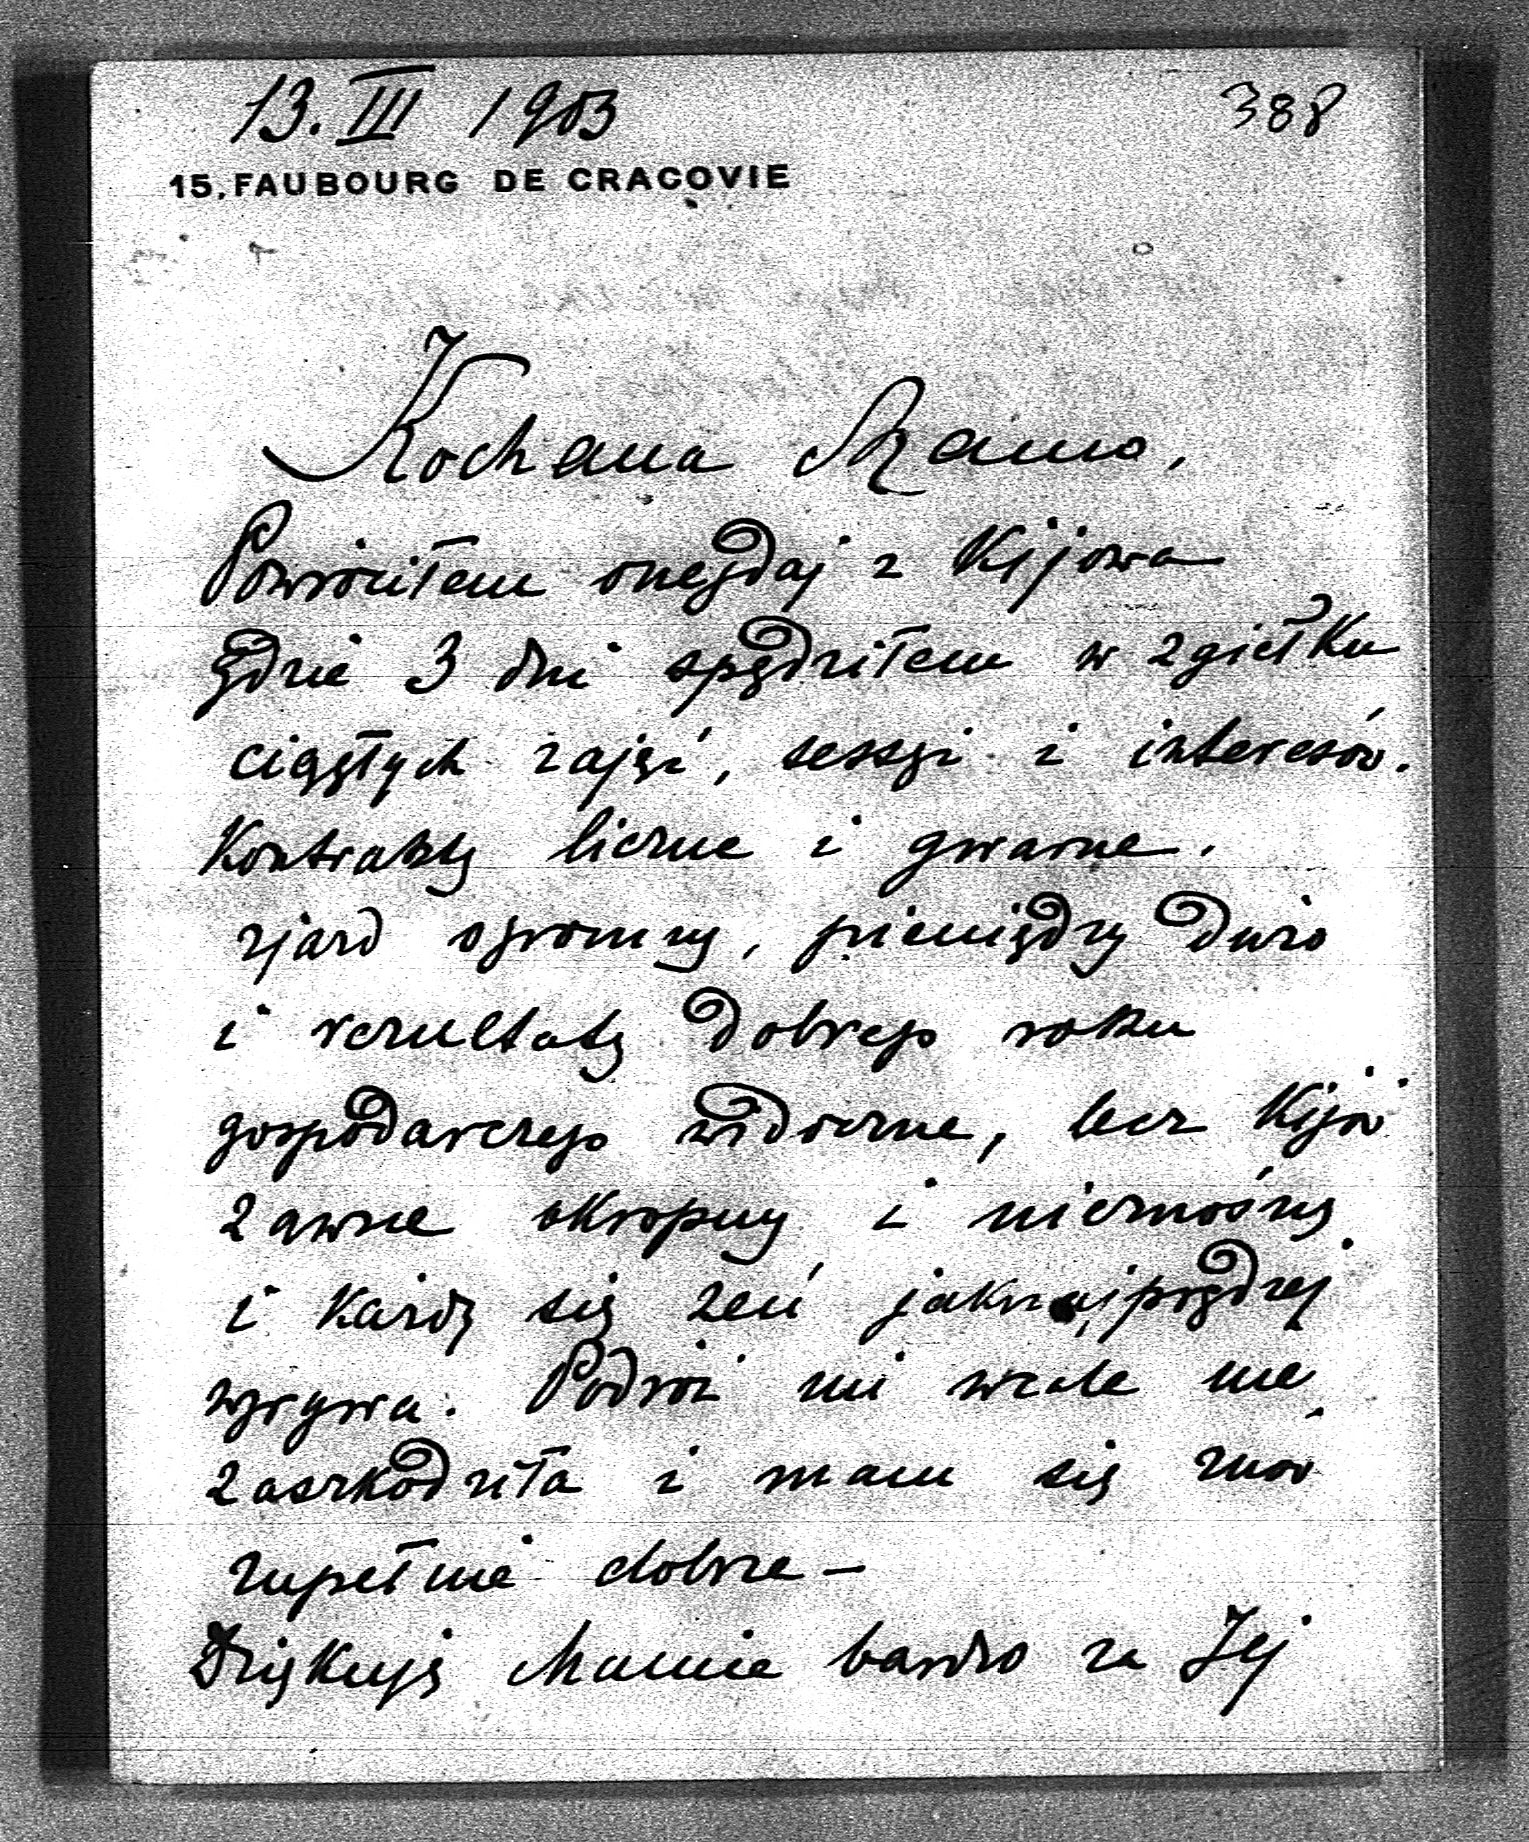 13. III 1903
388
15, FAUBOURG DE CRACOVIE
Kochana Mamo,
Powróciłem onegdaj z Kijowa
gdzie 3 dni spędziłem w zgiełku
ciągłych zajęć, sessyi i interesów.
Kontrakty liczne i gwarne,
zjazd ogromny, pieniędzy dużo
i rezultaty dobrego roku
gospodarczego widoczne, lecz Kijów
zawsze okropny i nieznośny
i każdy się zeń jaknajprędzej
wyrywa. Podróż mi wcale nie
zaszkodziła i mam się znów
zupełnie dobrze –
Dziękuję Mamie bardzo za Jej